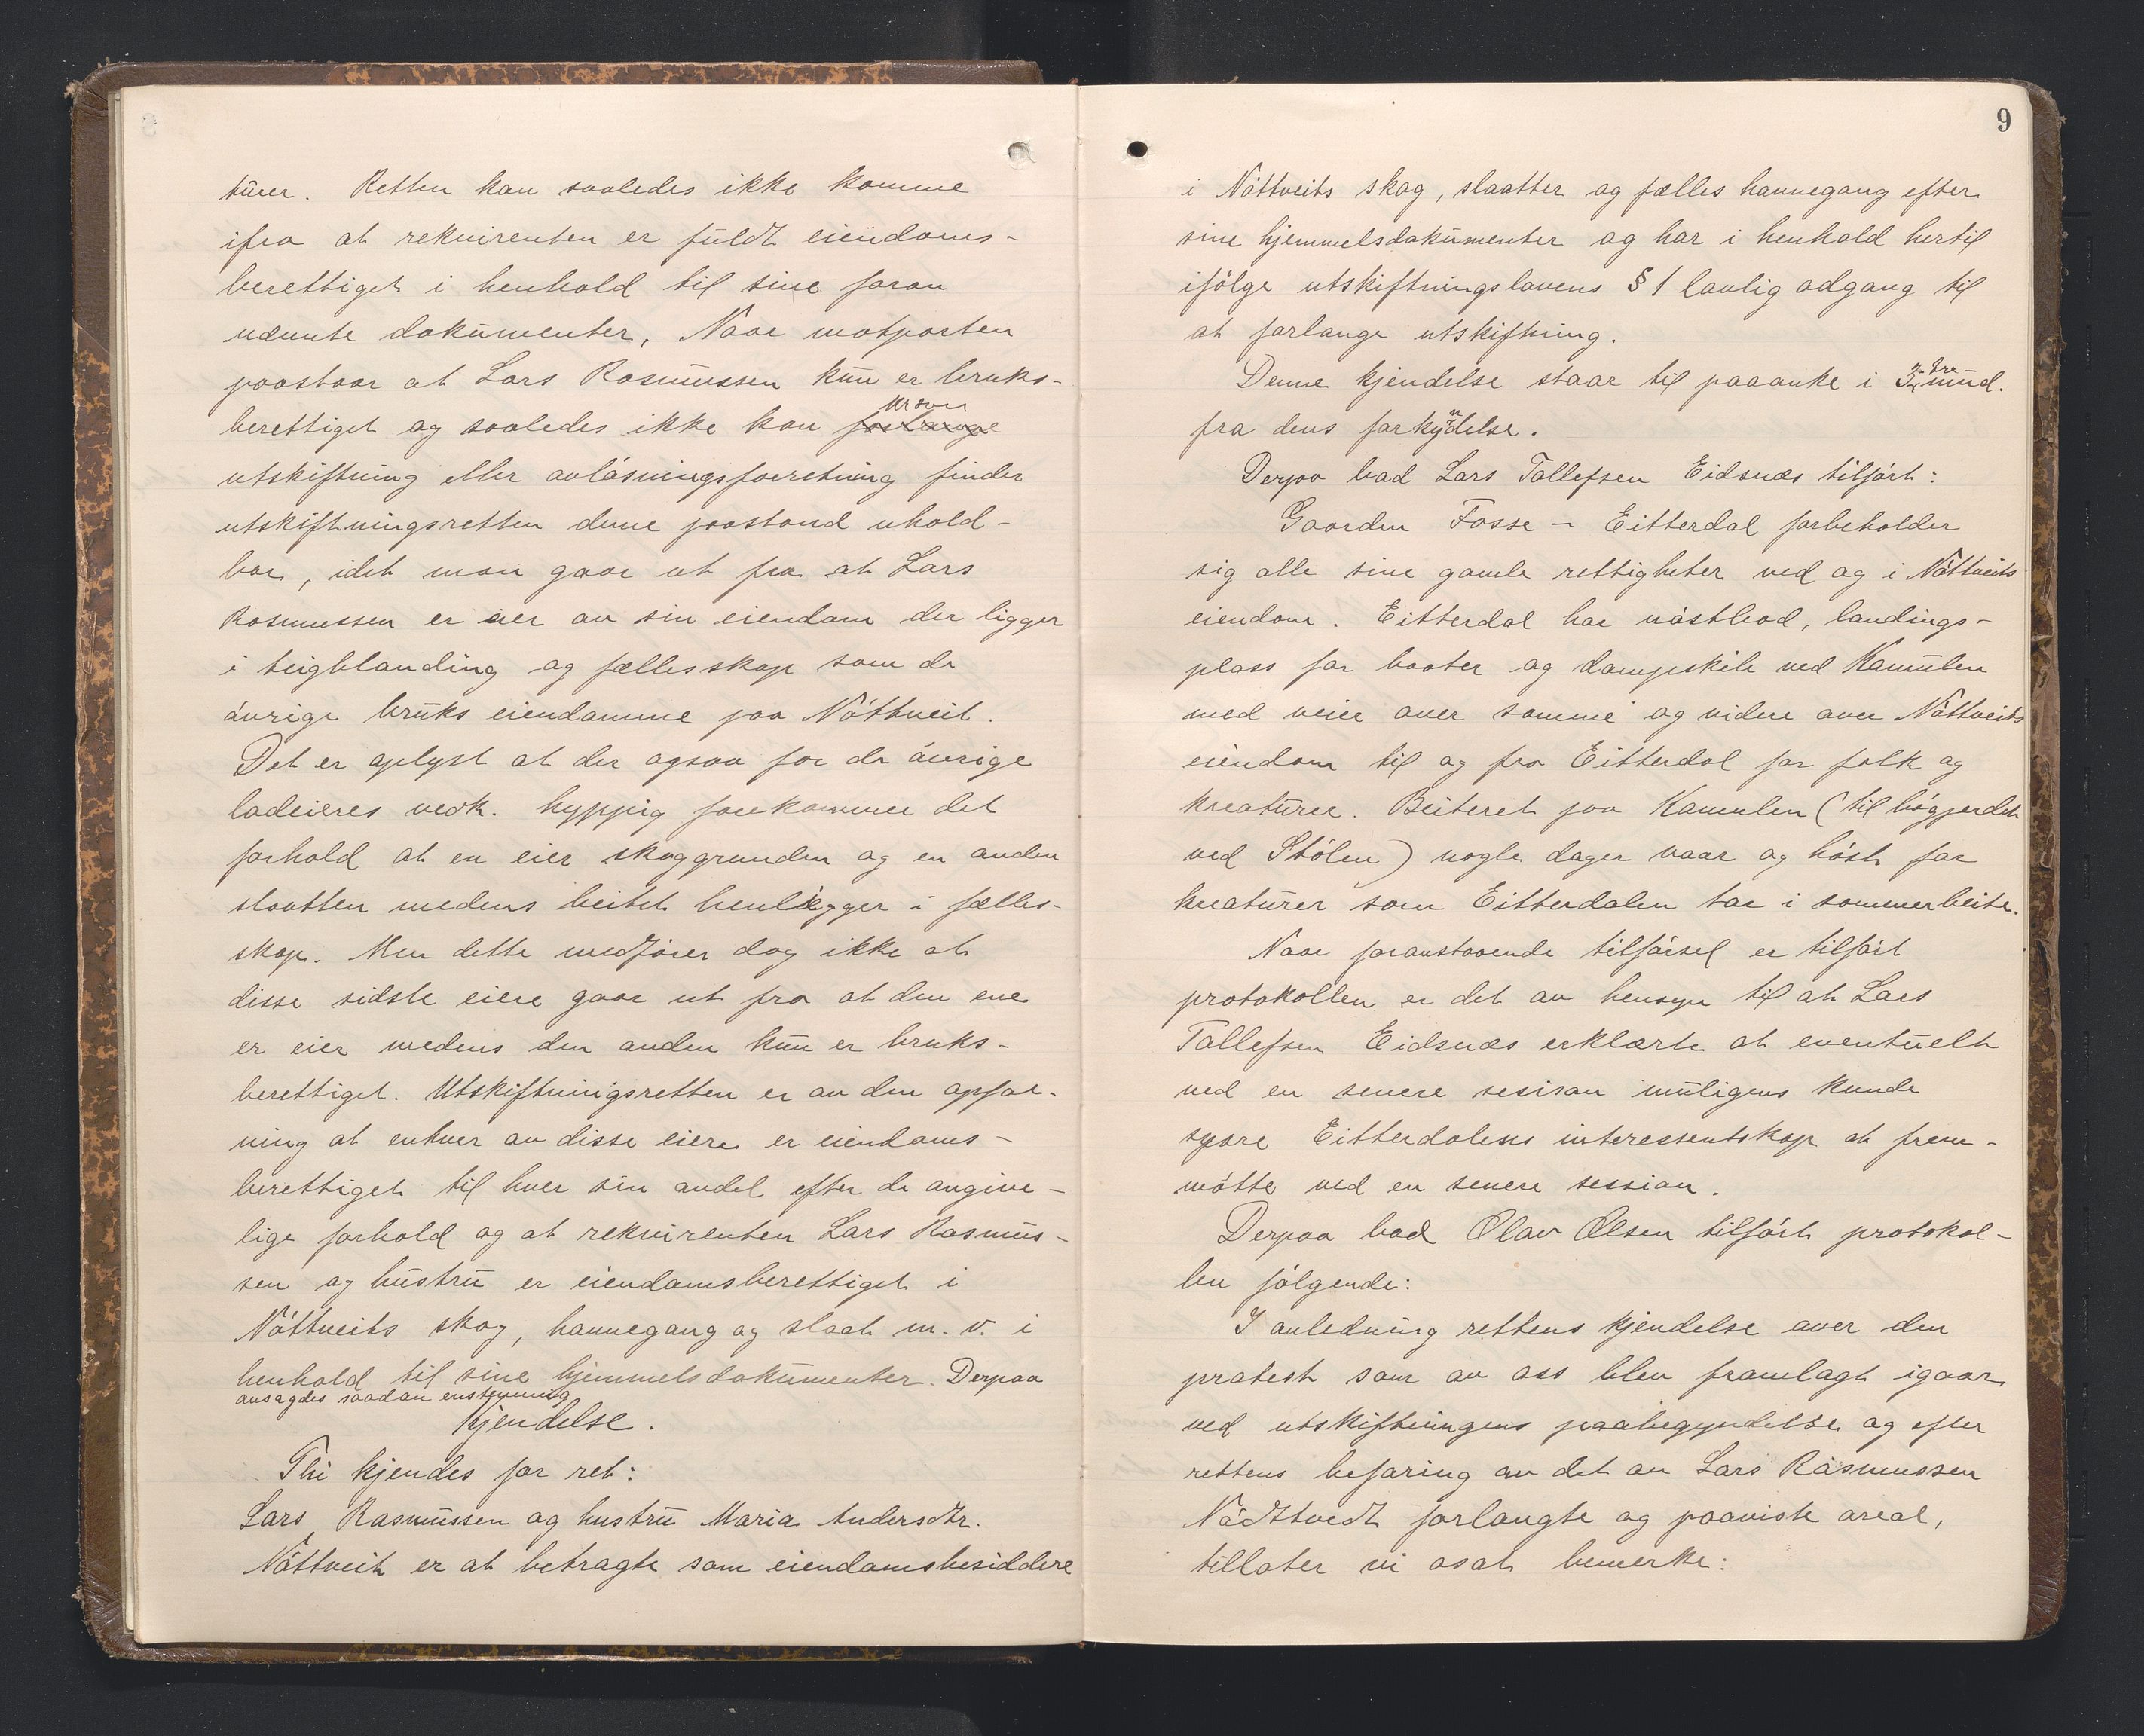 türer. Retten kan saaledes ikke komme
ifra at rekvirenten er fuldt eiendoms-
berettiget i henhold til sine foran
nævnte dokumenter, Naar motparten
paastaar at Lars Rasmussen kun er bruks-
berettiget og saaledes ikke kan kræve
utskiftning eller avløsningsforretning finder
utskiftningsretten denne paastand uhold-
bar, idet man gaar ut fra at Lars
Rasmussen er eier av sin eiendom der ligger
i teigblanding og fællesskap som de
øvrige bruks eiendomme paa Nøttveit.
Det er oplyst at der ogsaa for de øvrige
lodeieres vedk. hyppig forekommer det
forhold at en eier skoggrunden og en anden
slaatten medens beitet henligger i fælles-
skap. Men dette medfører dog ikke at
disse sidste eiere gaar ut fra at den ene
er eier medens den anden kun er bruks-
berettiget. Utskiftningsretten er av den opfat-
ning at enhver av disse eiere er eiendoms-
berettiget til hver sin andel efter de angive-
lige forhold og at rekvirenten Lars Rasmus-
sen og hustru er eiendomsberettiget i
Nøttveits skog, havnegang og slaat m. v. i
henhold til sine hjemmelsdokumenter. Derpaa
avsagdes saadan enstemmig
Kjendelse.
Thi kjendes for ret:
Lars Rasmussen og hustru Maria Andersdtr.
Nøttveit er at betragte som eiendomsbesiddere
9
i Nøttveits skog, slaatter og fælles havnegang efter
sine hjemmelsdokumenter og har i henhold hertil
ifølge utskiftningslovens § 1 lovlig adgang til
at forlange utskiftning.
Denne kjendelse staar til paaanke i 3 tre mnd.
fra dens forkyndelse.
Derpaa bad Lars Tollefsen Eidsnæs tilført:
Gaarden Fosse - Eitterdal forbeholder
sig alle sine gamle rettigheter ved og i Nøttveits
eiendom. Eitterdal har nøstbod, landings-
plass for baater og dampskib ved Kamulen
med veier over samme og videre over Nøttveits
eiendom til og fra Eitterdal for folk og
kreatürer. Beiteret paa Kamulen (til bøgjerdet
ved Stølen) nogle dager vaar og høst for
kreaturer som Eitterdalen tar i sommerbeite.
Naar foranstaaende tilførsel er tilført
protokollen er det av hensyn til at Lars
Tollefsen Eidsnæs erklærte at eventuelt
ved en senere sesison muligens kunde
spare Eitterdalens interessentskap at frem-
møtte ved en senere session.
Derpaa bad Olav Olsen tilført protokol-
len følgende:
I anledning rettens kjendelse over den
protest som av oss blev framlagt igaar
ved utskiftningens paabegyndelse og efter
rettens befaring av det av Lars Rasmussen
Nødttvedt forlangte og paaviste areal,
tillater vi osat bemerke: